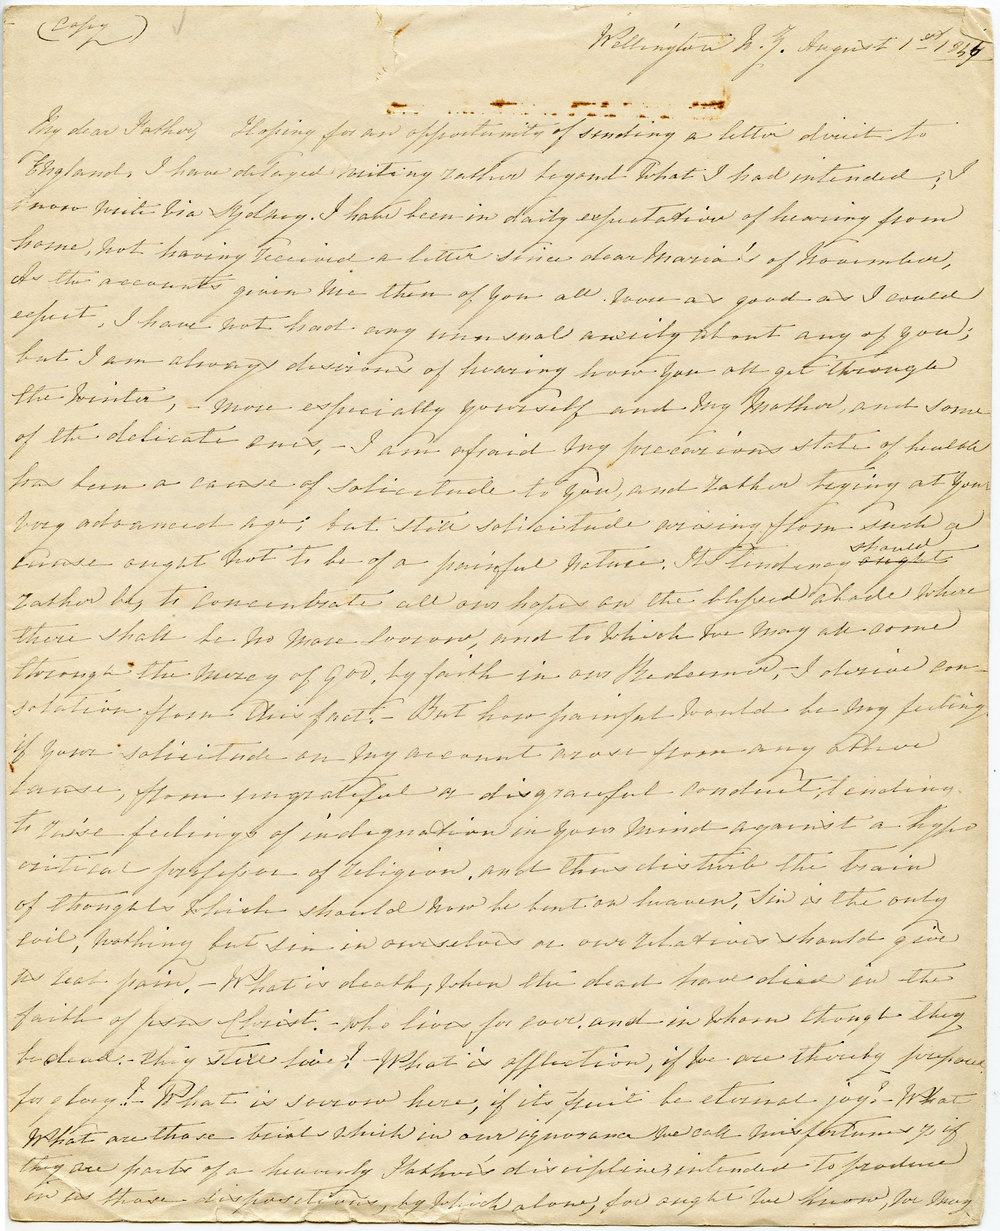 (Copy)
Wellington N.Z. August 1st 1846
My dear Father, Hoping for an opportunity of sending a letter direct to
England, I have delayed writing rather beyond what I had intended; I
now write Via Sydney. I have been in daily expectation of hearing from
home, not having received a letter since dear Maria's of November,
As the accounts given me then of you all were as good as I could
expect, I have not had any unusual anxiety about any of you;
but I am always desirous of hearing how you all get through
the Winter, - more especially yourself and my Mother, and some
of the delicate ones, - I am afraid my precarious state of health
has been a cause of solicitude to you, and rather trying at your
very advanced age; but still solicitude arising from such a
cause ought not to be of a painful nature. Its tendency ought should
rather be, to concentrate all our hopes on the blessed abode where
there shall be no more sorrow, and to which we may all come
through the mercy of God, by faith in our Redeemer, - I derive con-
solation from this fact. - But how painful would be my feelings
if your solicitude on my account arose from any other
cause, from ungrateful or disgraceful conduct, tending
to raise feelings of indignation in your mind against a hypo
critical professor of religion, and thus disturb the train
of thoughts which should now be bent on heaven, Sin is the only
evil, nothing but sin in ourselves or our relatives should give
us real pain. - What is death, when the dead have died in the
faith of Jesus Christ. - who lives for ever, and in whom though they
be dead - they still live! - What is affliction, if we are thereby prepared
for glory! - What is sorrow here, if its fruit be eternal joy? - What
What are those trials which in our ignorance we call misfortunes, if
they are parts of a heavenly Father's discipline, intended to produce
in us those dispositions, by which alone, for ought we know, we may